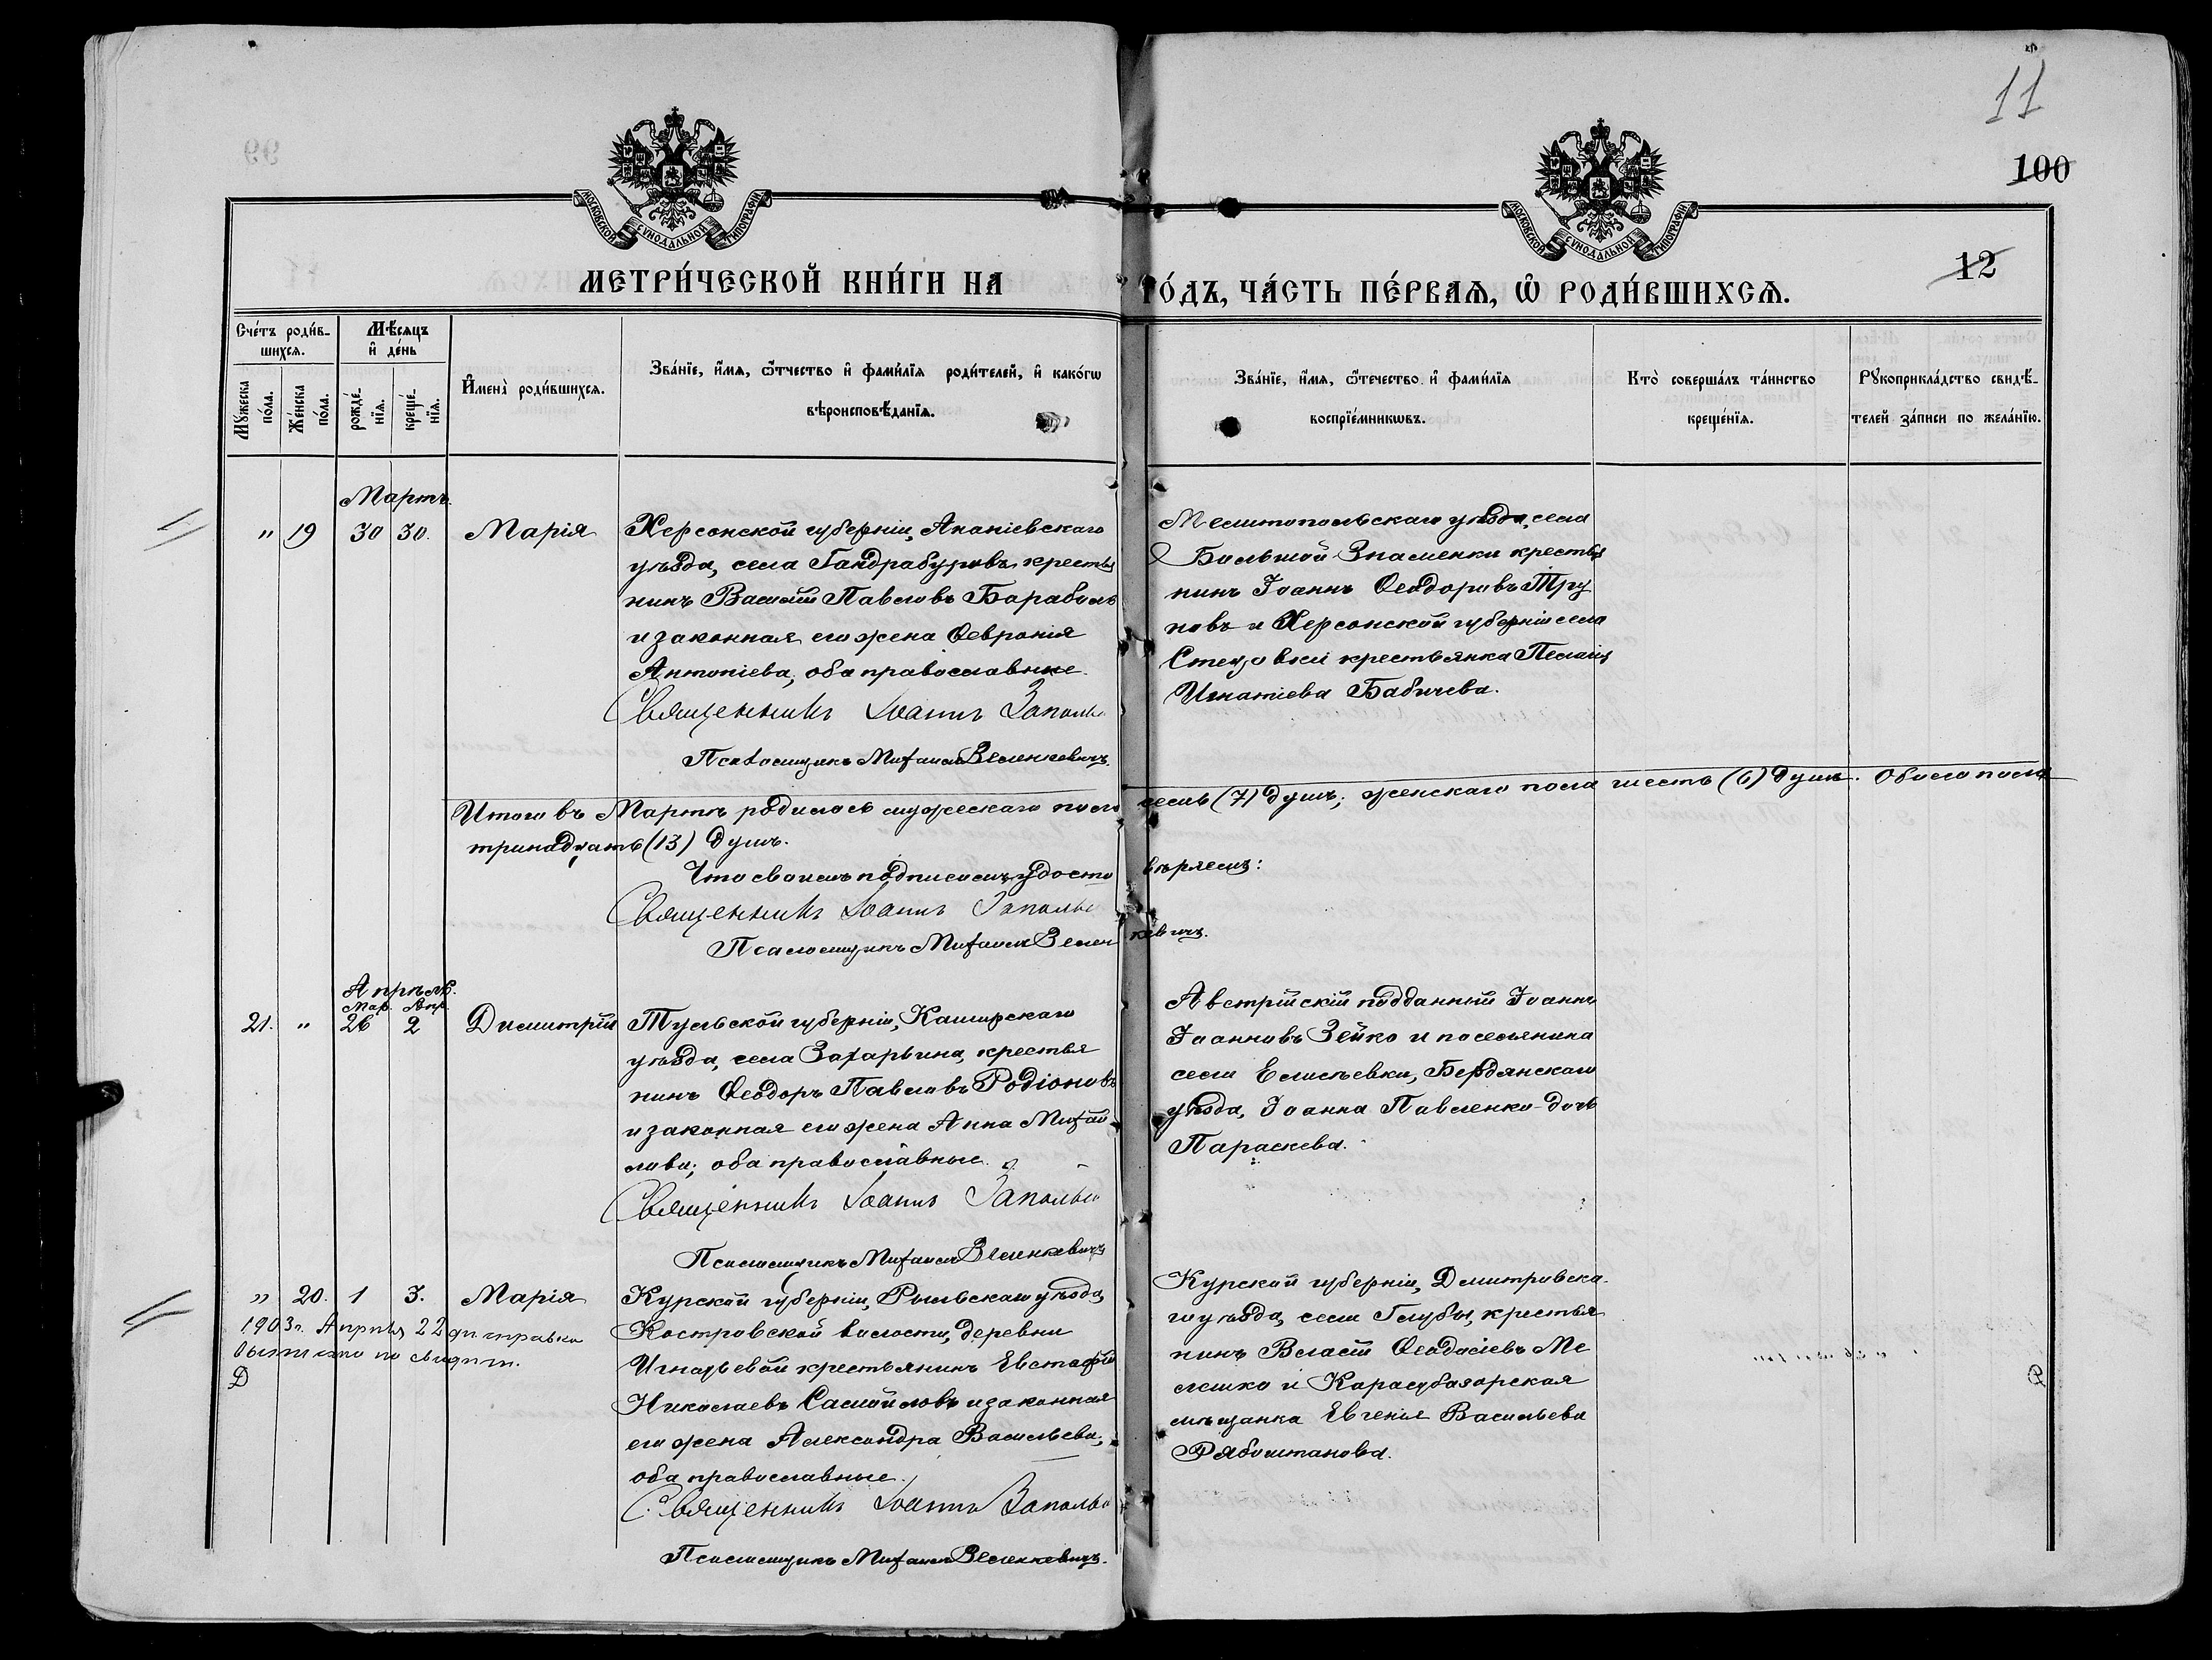 11
100
12
МОСКОВСКОЙ СѴНОДАЛЬНОЙ ТИПОГРАФІИ
МОСКОВСКОЙ СѴНОДАЛЬНОЙ ТИПОГРАФІИ
МЕТРИ́ЧЕСКОЙ КНИ́ГИ НА
ГО́ДЪ, ЧА́СТЬ ПЕ́РВАѦ, Ѡ҆ РОДИ́ВШИХСѦ.
Сче́тъ роди́в-
шихсѧ.
Мѣ́сѧцъ
и҆ де́нь
Мꙋ́жеска
по́ла.
Же́нска
по́ла.
рожде́-
нїѧ.
креще́-
нїѧ.
И҆мена̀ роди́вшихсѧ.
Зва́нїе, и҆́мѧ, ѻ҆́тчество и҆ фами́лїѧ роди́телей, и҆ како́гѡ
вѣроисповѣ́данїѧ.
Зва́нїе, и҆́мѧ, ѻ҆те́чество и҆ фами́лїѧ
воспрїе́мникѡвъ.
Кто̀ соверша́лъ та́инство
креще́нїѧ.
Рꙋкоприкла́дство свидѣ́-
телей за́писи по жела́нїю.
Мартъ.
" 19 30 30. Марія
Херсонской губерніи, Ананіевскаго
уѣзда, села Гандрабуровъ, крестья
нинъ Василій Павловъ Бараболь
и законная его жена Феvронія
Антоніева, оба православные.
Священникъ Іоаннъ Заполь
Псаломщикъ Михаилъ Зеленкевичъ.
Мелитопольскаго уѣзда, села
Большой Знаменки крестья
нинъ Іоаннъ Ѳеодоровъ Тру
новъ и Херсонской губерніи села
Стецовки крестьянка Пелагія
Игнатіева Бабичева.
Итого въ Мартѣ родилось мужескаго пола семь (7) душъ; женскаго пола шесть (6) душъ. Обоего пола
тринадцать (13) душъ.
Что своимъ подписомъ удостовѣряемъ:
Священникъ Іоаннъ Заполь
Псаломщикъ Михаилъ Зеленкевичъ.
Апрѣль.
Мар. Апр.
21. " 26 2 Димитрій
Тульской губерніи, Каширскаго
уѣзда, села Захарьина, крестья
нинъ Ѳеодоръ Павловъ Родіоновъ
и законная его жена Анна Михай
лова; оба православные.
Священникъ Іоаннъ Заполь
Псаломщикъ Михаилъ Зеленкевичъ
Австрійскій подданный Іоаннъ
Іоанновъ Зейко и поселянина
села Елисѣевки, Бердянскаго
уѣзда, Іоанна Павленко - дочь
Параскева.
" 20. 1 3. Марія
1903 г. Апрѣля 22 дн. справка
по свидѣт.
Д
Курской губерніи, Рыльскаго уѣзда,
Костровской волости, деревни
Игнатьевой крестьянинъ Евстафій
Николаевъ Самойловъ и законная
его жена Александра Васильева,
оба православные.
Священникъ Іоаннъ Заполь
Псаломщикъ Михаилъ Зеленкевичъ.
Курской губерніи, Дмитровска-
го уѣзда, села Глубы, крестья
нинъ Власій Ѳеодосіевъ Ме
лешко и Карасубазарская
мѣщанка Евгенія Васильева
Рябоштанова.